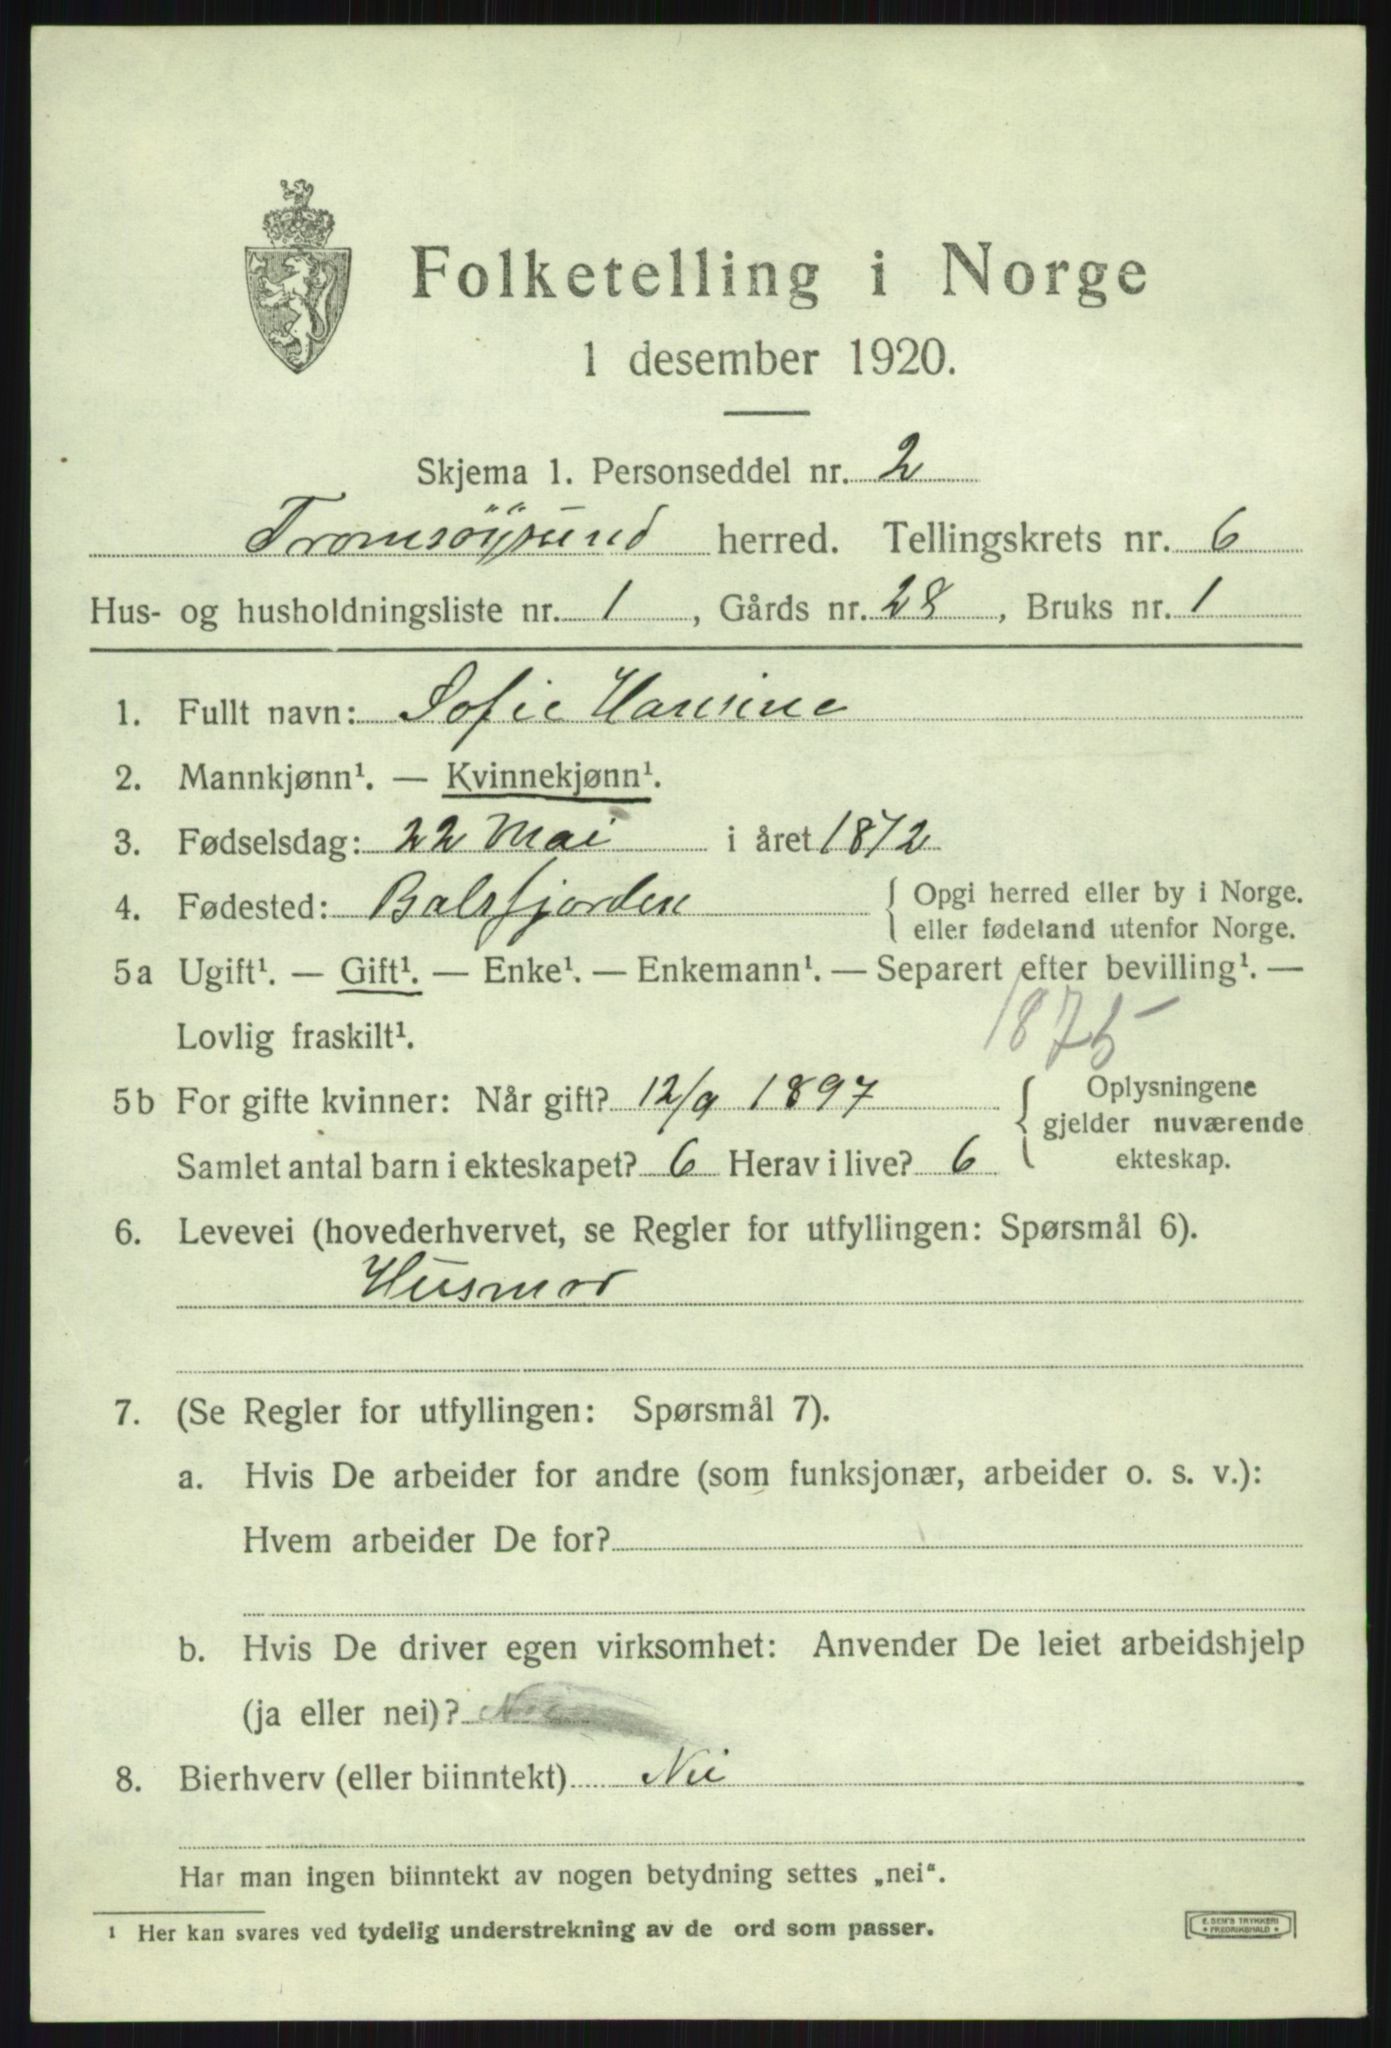 Folketelling i Norge
1 desember 1920.
Skjema 1. Personseddel nr. 2
Tromsöysund herred. Tellingskrets nr. 6
Hus- og husholdningsliste nr. 1, Gårds nr. 28, Bruks nr. 1
1. Fullt navn: Sofie Hansine
2. Mannkjønn¹. — Kvinnekjønn¹.
3. Fødselsdag: 22 Mai i året 1872
4. Fødested: Balsfjorden { Opgi herred eller by i Norge.
eller fødeland utenfor Norge.
5a Ugift¹. — Gift¹. — Enke¹. — Enkemann¹. — Separert efter bevilling¹. —
Lovlig fraskilt¹. 1875
5b For gifte kvinner: Når gift? 12/9 1897 { Oplysningene
gjelder nuværende
Samlet antal barn i ekteskapet? 6 Herav i live? 6 ekteskap.
6. Levevei (hovederhvervet, se Regler for utfyllingen: Spørsmål 6).
Husmor
7. (Se Regler for utfyllingen: Spørsmål 7).
a. Hvis De arbeider for andre (som funksjonær, arbeider o. s. v.):
Hvem arbeider De for?
b. Hvis De driver egen virksomhet: Anvender De leiet arbeidshjelp
(ja eller nei)? Nei
8. Bierhverv (eller biinntekt) Nei
Har man ingen biinntekt av nogen betydning settes „nei“.
¹ Her kan svares ved tydelig understrekning av de ord som passer.
E. SEM'S TRYKKERI
FREDRIKSHALD